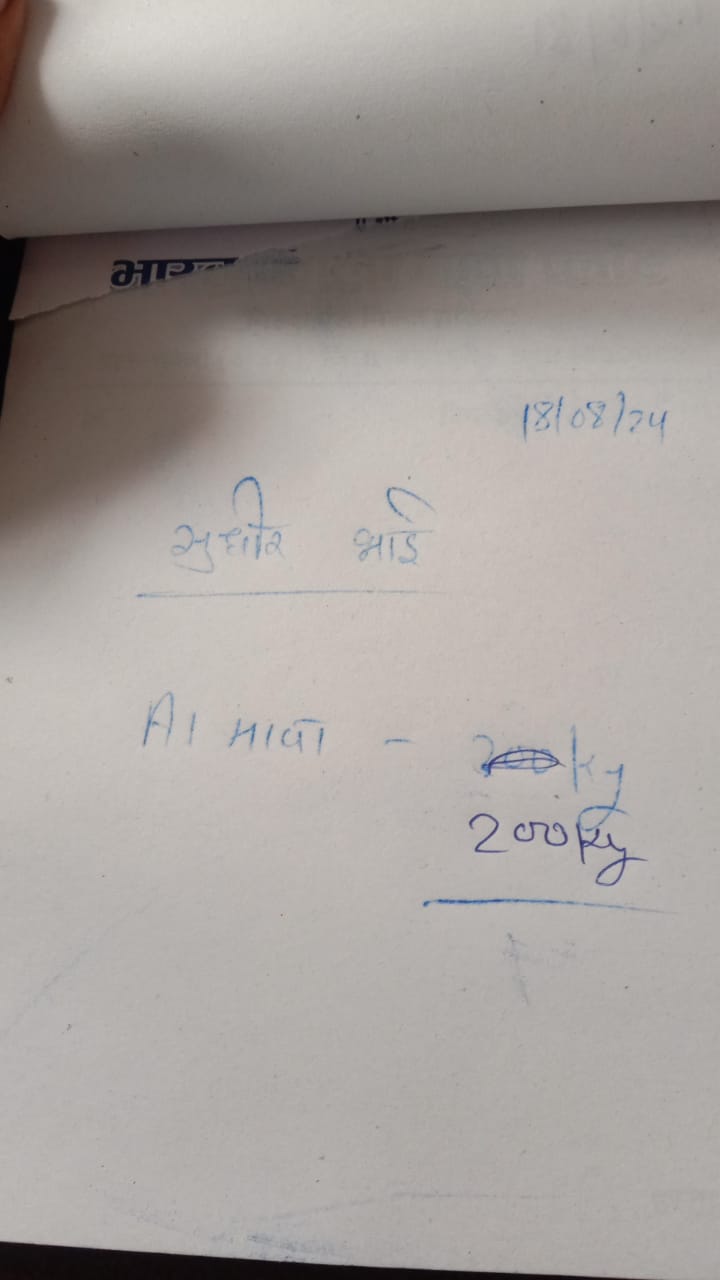 18/08/24
सुधीर भाई
A1 मावा - 200 kg
200 kg